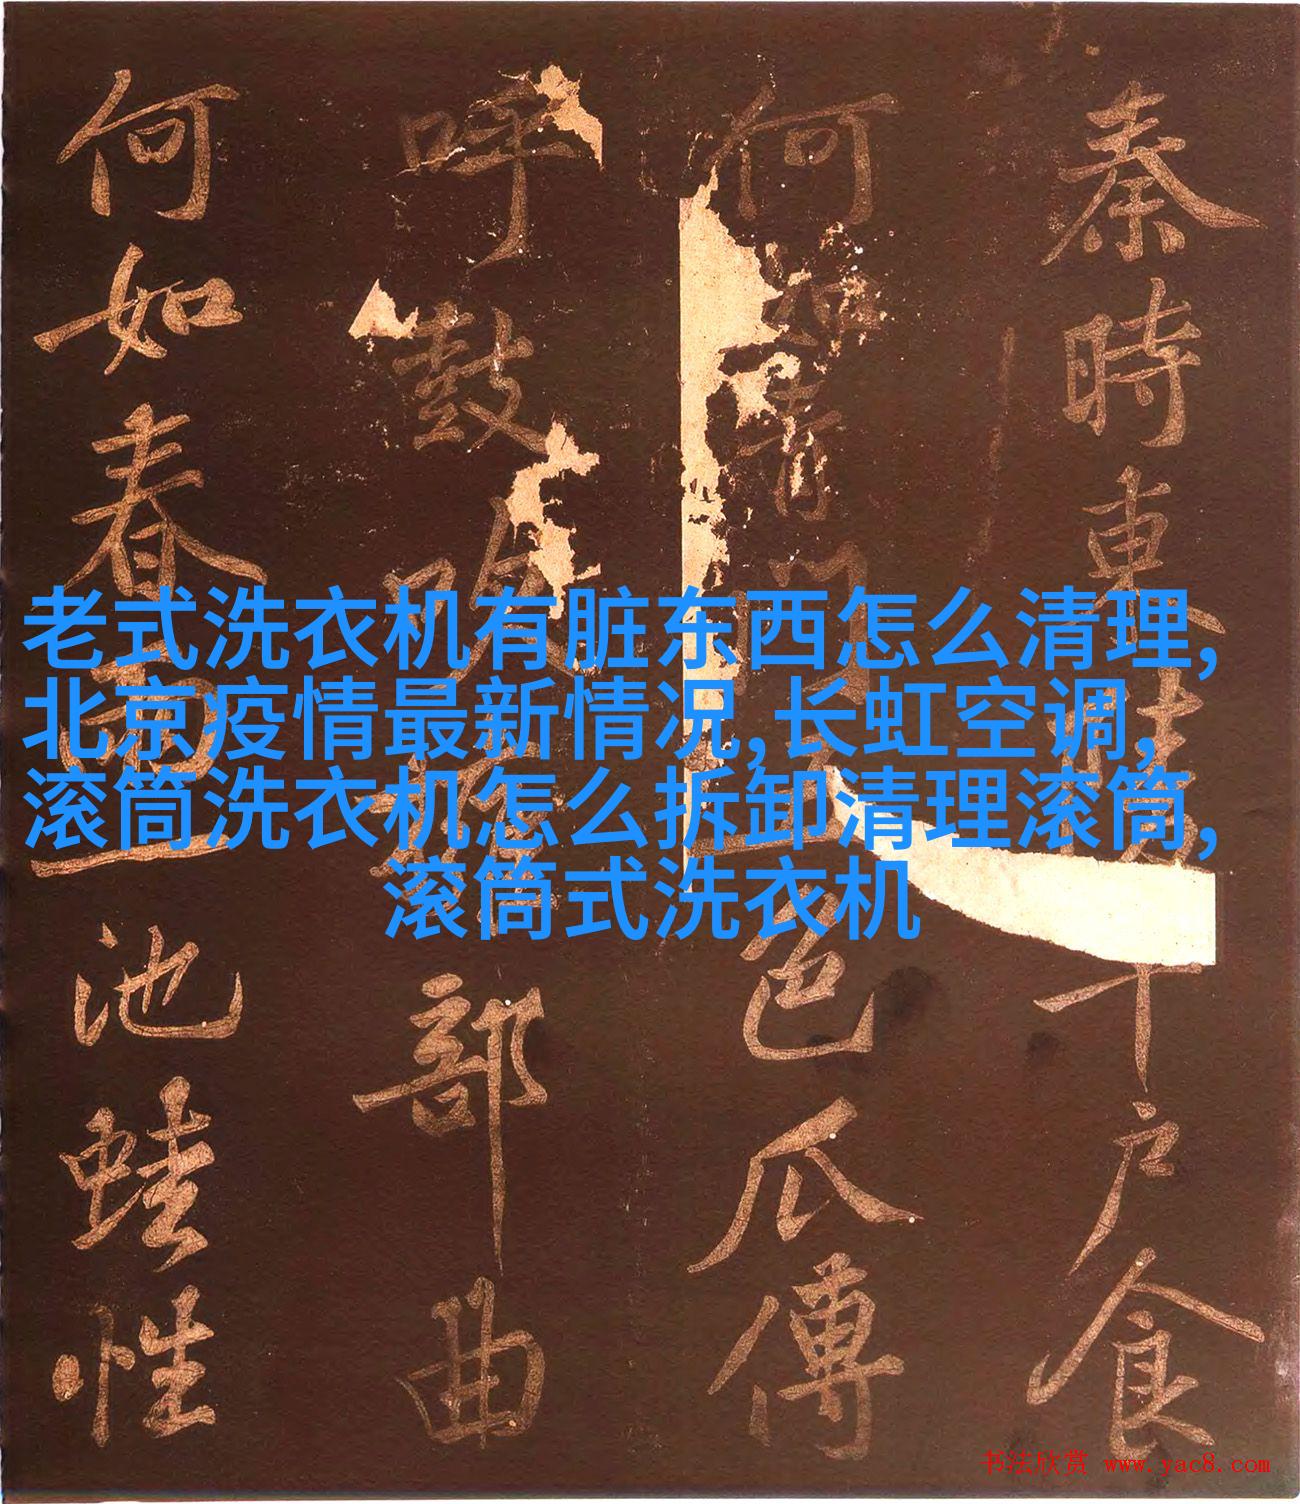 老式洗衣机有脏东西怎么清理,
北京疫情最新情况,长虹空调,
滚筒洗衣机怎么拆卸清理滚筒,
滚筒式洗衣机
秦時東千戶食
何如青門色瓜傅
呼鼓吹部曲
何如春池蛙性
书法欣赏 www.yac8.com